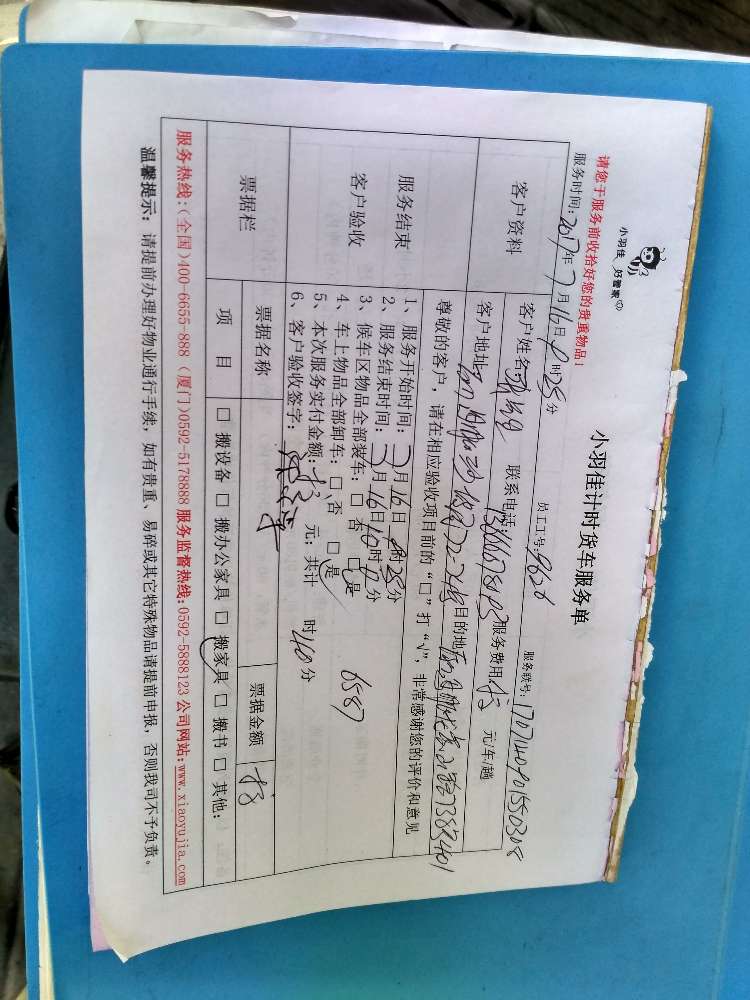 小羽佳 好管家
小羽佳计时货车服务单
请您于服务前收拾好您的贵重物品！
服务时间：2017年7月16日9时25分 员工工号：9626 服务联号：
客户资料
客户姓名 联系电话： 服务费用 元/车/趟
客户地址 目的地
尊敬的客户，请在相应验收项目前的“□”打“√”，非常感谢您的评价和意见
服务结束
客户验收
1、服务开始时间：7月16日9时25分
2、服务结束时间：7月16日10时分
3、候车区物品全部装车：□ 否 □ 是
4、车上物品全部卸车：□ 否 □ 是 6587
5、本次服务实付金额： 元；共计 时40分
6、客户验收签字：
票据栏
票据名称 票据金额
项 目 □ 搬设备 □ 搬办公家具 □ 搬家具 □ 搬书 □ 其他：
服务热线：(全国)400-6655-888 (厦门)0592-5178888 服务监督热线：0592-5888123 公司网站：www.xiaoyujia.com
温馨提示： 请提前办理好物业通行手续，如有贵重、易碎或其它特殊物品请提前申报，否则我司不予负责。